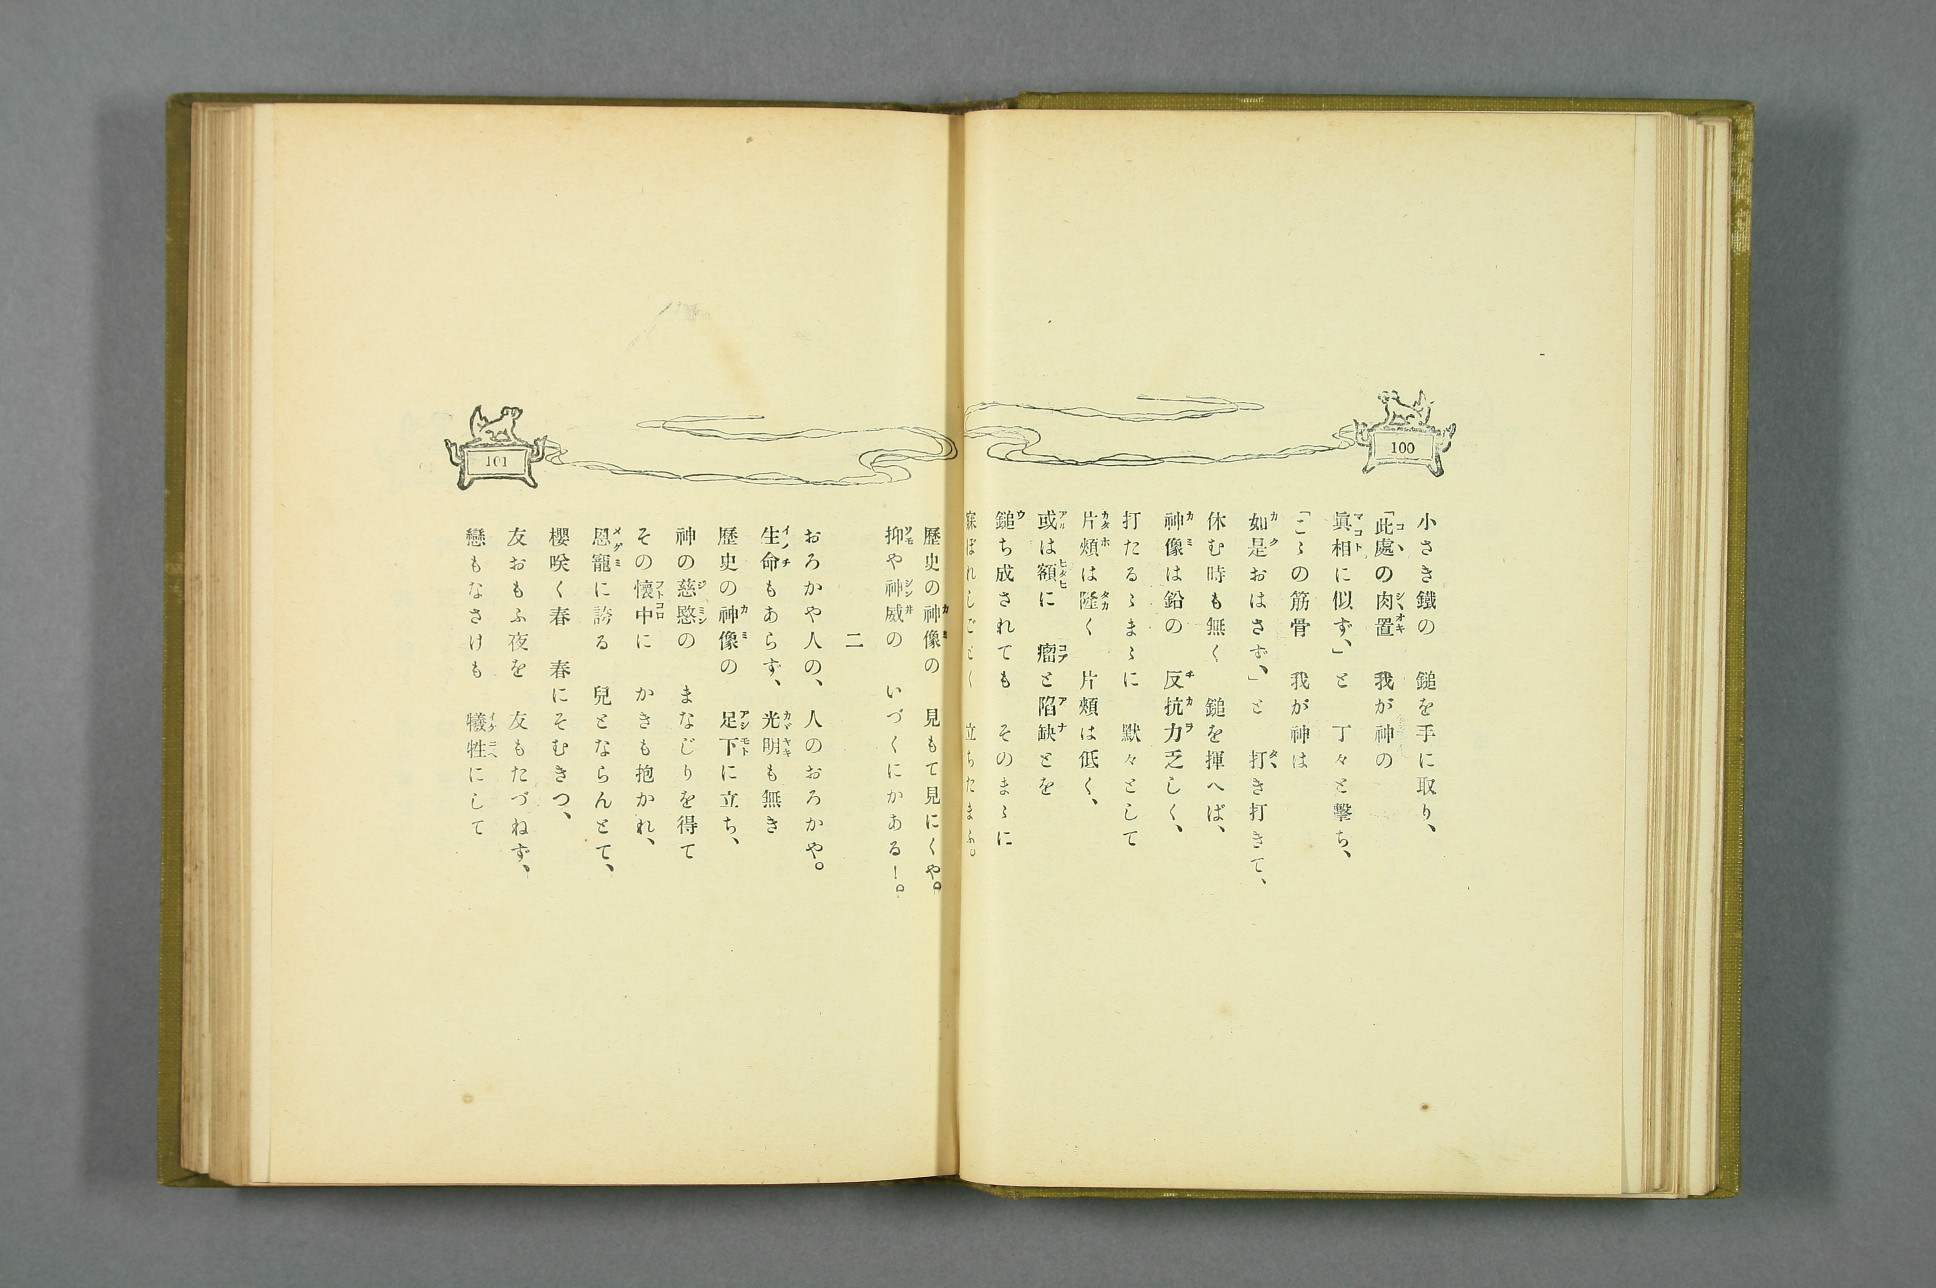 100
小さき鐵の　鎚を手に取り、
「此處の肉置　我が神の
眞相に似ず、」と　丁々と擊ち、
「こゝの筋骨　我が神は
如是おはさず、」と　打き打きて、
休む時も無く　鎚を揮へば、
神像は鉛の　反抗力乏しく、
打たるゝまゝに　默々として
片頬は隆く　片頬は低く、
或は額に　瘤と陷缺とを
鎚ち成されても　そのまゝに
寐ぼれしごとく　立ちたまふ。
101
歷史の神像の　見もて見にくや。
抑や神威の　いづくにかある！。
二
おろかや人の、人のおろかや。
生命もあらず、光明も無き
歷史の神像の　足下に立ち、
神の慈愍の　まなじりを得て
その懷中に　かきも抱かれ、
恩寵に誇る　兒とならんとて、
櫻咲く春　春にそむきつ、
友おもふ夜を　友もたづねず、
戀もなさけも　犧牲にして